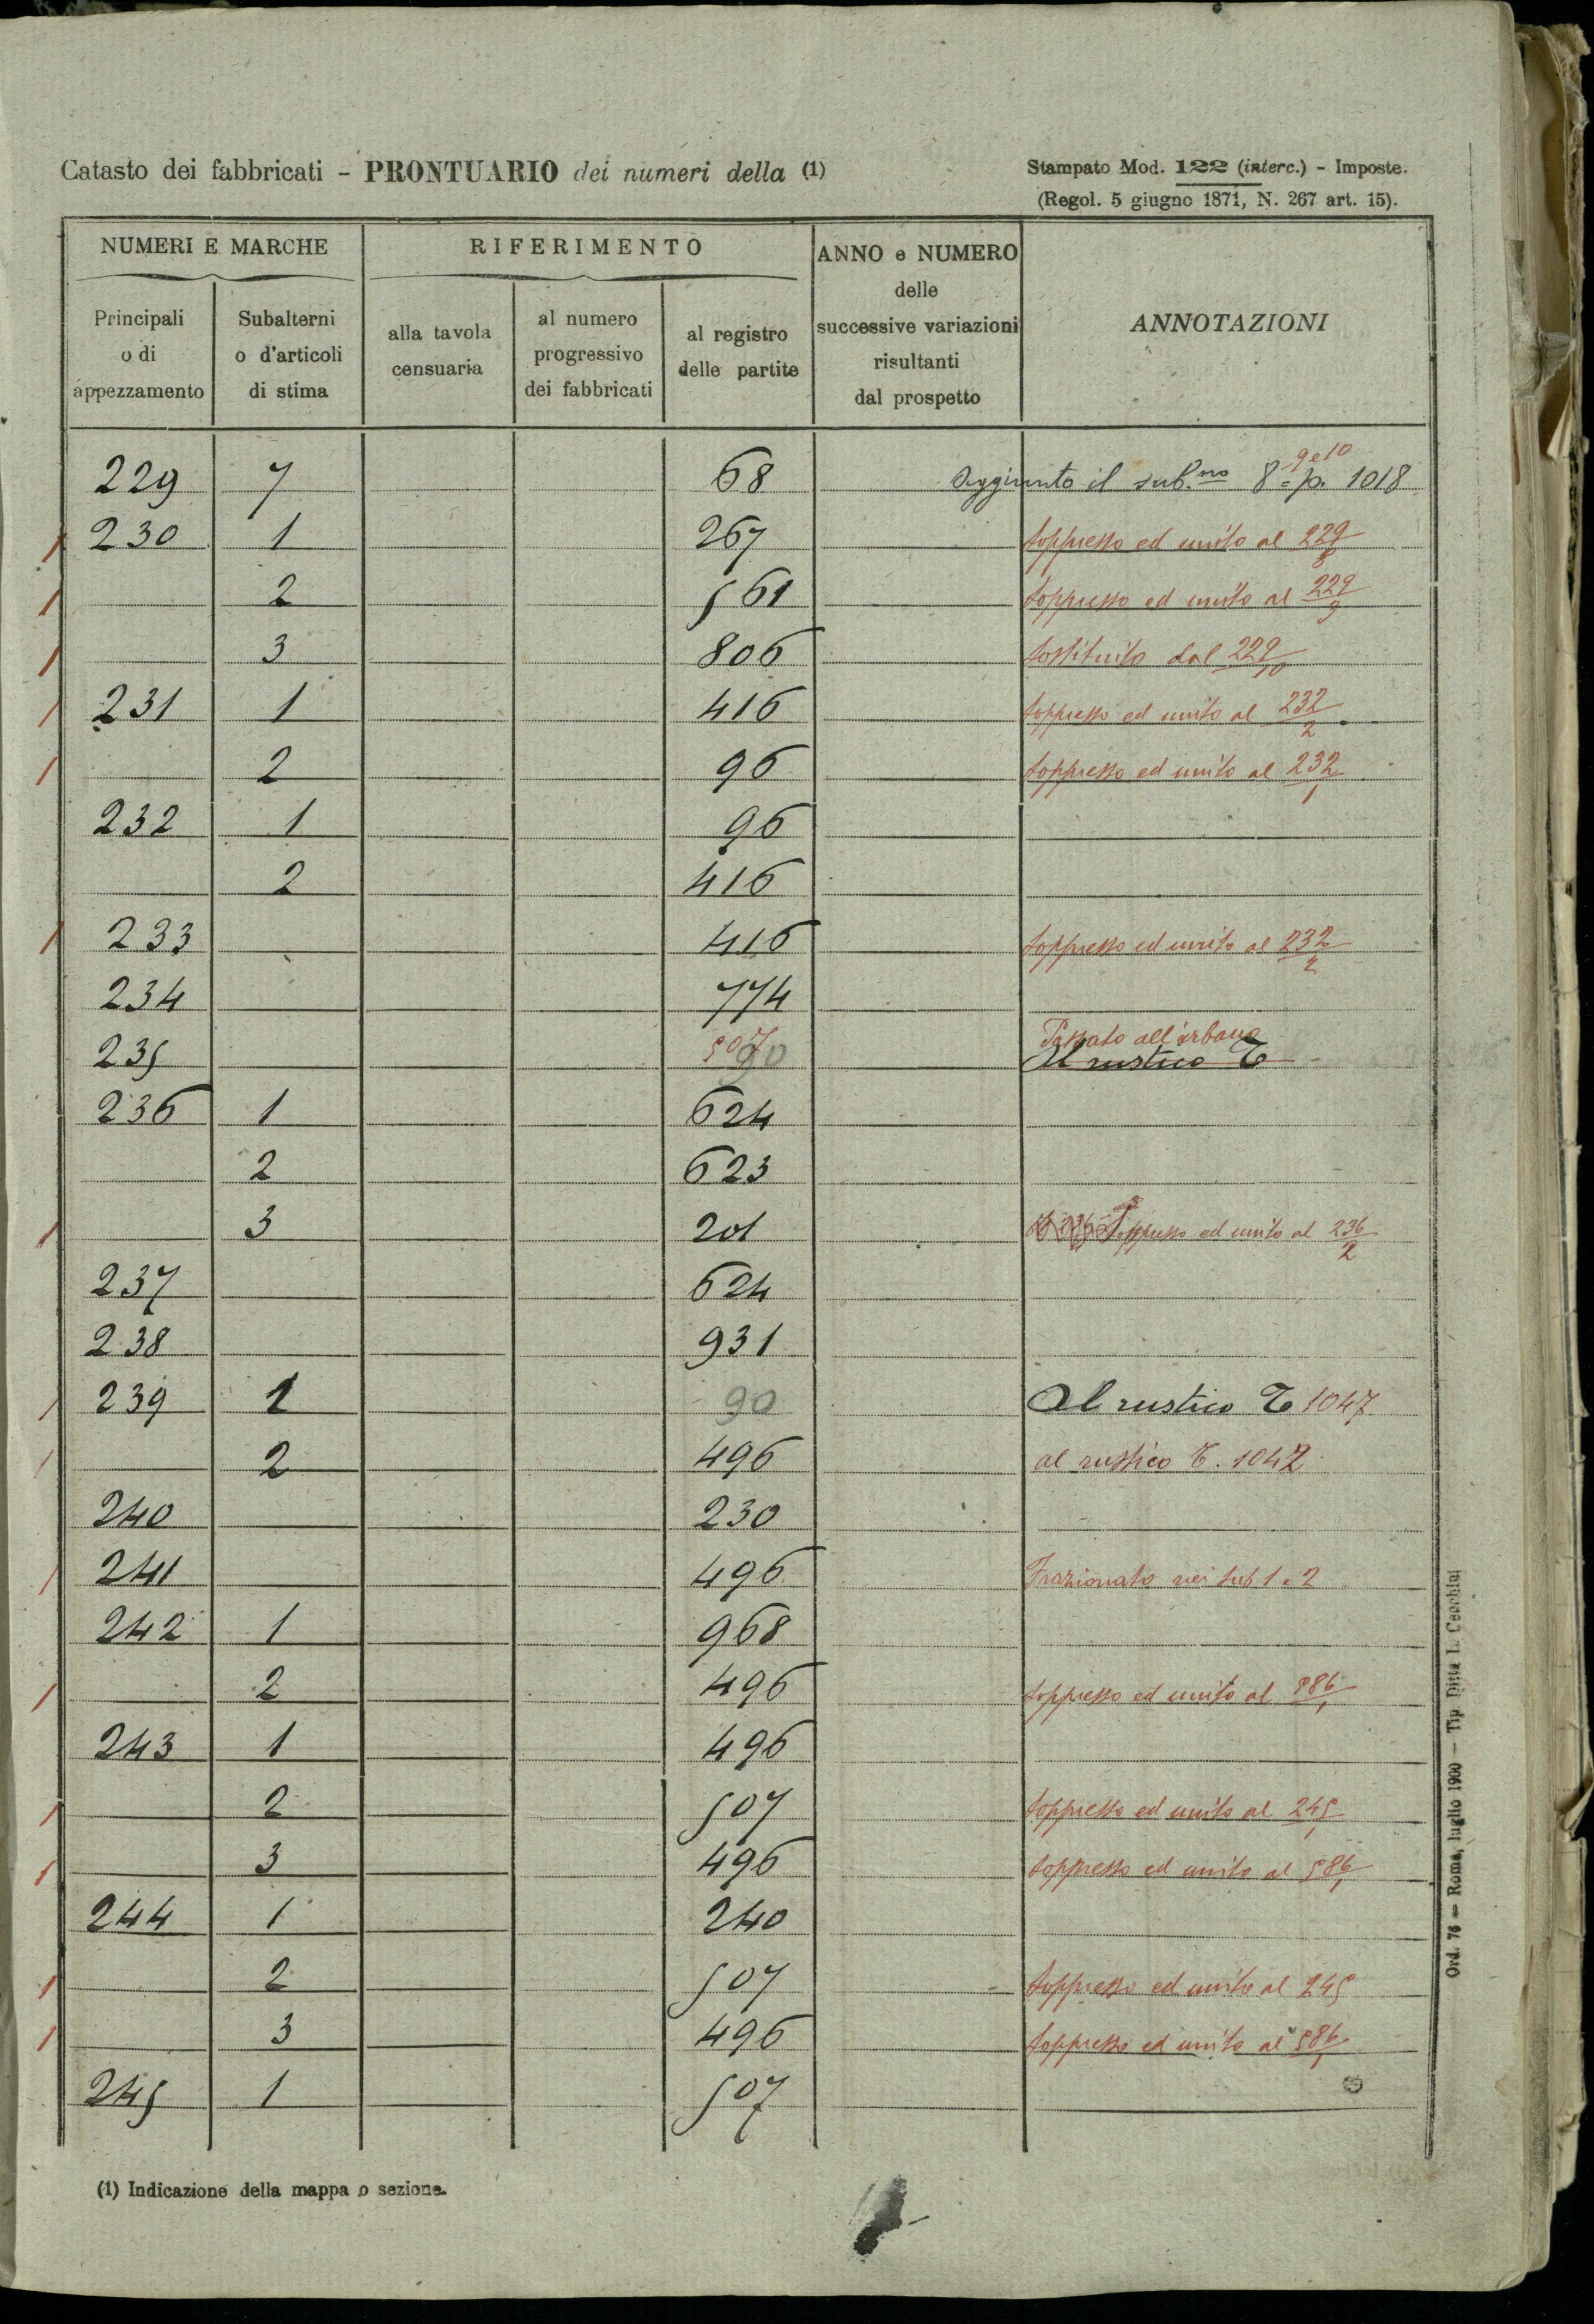 Catasto dei fabbricati - PRONTUARIO dei numeri della (1)
Stampato Mod. 122 (interc.) - Imposte.
(Regol. 5 giugno 1871, N. 267 art. 15).
NUMERI E MARCHE
RIFERIMENTO
ANNO e NUMERO delle successive variazioni risultanti dal prospetto
ANNOTAZIONI
Principali o di appezzamento
Subalterni o d'articoli di stima
alla tavola censuaria
al numero progressivo dei fabbricati
al registro delle partite
9 e 10
229 7 68 Aggiunto il sub.no 8 = p. 1018
230 1 267 soppresso ed unito al 229/8
2 561 soppresso ed unito al 229/9
3 806 sostituito dal 229/10
231 1 416 soppresso ed unito al 232/2
2 96 soppresso ed unito al 232/1
232 1 96
2 416
233 416 soppresso ed unito al 232/2
234 774
Passato all'urbano
235 507 90 Al rustico T
236 1 624
2 623
3 201 Soppresso ed unito al 236/2
237 624
238 931
239 1 90 Al rustico T 1047
2 496 al rustico T. 1042
240 230
241 496 Frazionato nei sub 1 e 2
242 1 968
2 496 soppresso ed unito al 586/1
243 1 496
2 507 soppresso ed unito al 245/1
3 496 soppresso ed unito al 586/1
244 1 240
2 507 soppresso ed unito al 245
3 496 soppresso ed unito al 586/1
245 1 507
(1) Indicazione della mappa o sezione.
Ord. 76 — Roma, luglio 1900 — Tip. Ditta L. Cecchini